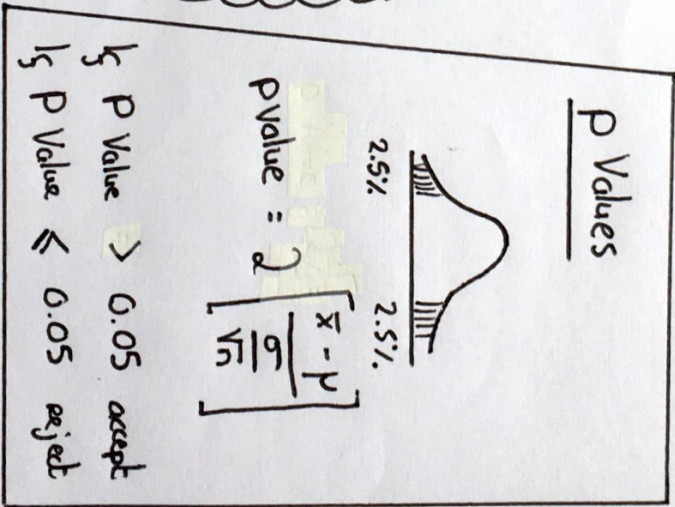 p Values
2.5% 2.5%.
pvalue = 2 [x̄ - μ / σ / √n]
If p Value > 0.05 accept
If p Value ⩽ 0.05 reject